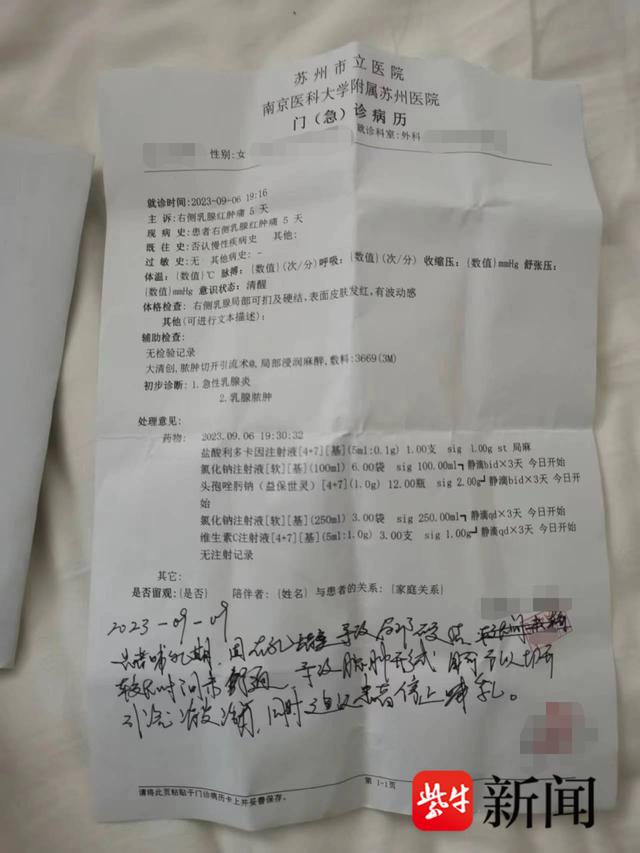 苏州市立医院
南京医科大学附属苏州医院
门（急）诊病历
性别:女 就诊科室:外科
就诊时间:2023-09-06 19:16
主 诉:右侧乳腺红肿痛 5 天
现 病 史:患者右侧乳腺红肿痛 5 天
既 往 史:否认慢性疾病史 其他:
过 敏 史:无 其他病史:-
体温:(数值)℃ 脉搏:(数值)(次/分) 呼吸:(数值)(次/分) 收缩压:(数值)mmHg 舒张压:
(数值)mmHg 意识状态:清醒
体格检查:右侧乳腺局部可扪及硬结,表面皮肤发红,有波动感
其他(可进行文本描述):
辅助检查:
无检验记录
大清创,脓肿切开引流术@,局部浸润麻醉,敷料:3669(3M)
初步诊断:1.急性乳腺炎
2.乳腺脓肿
处理意见:
药物: 2023.09.06 19:30:32
盐酸利多卡因注射液[4+7][基](5ml:0.1g) 1.00支 sig 1.00g st 局麻
氯化钠注射液[软][基](100ml) 6.00袋 sig 100.00ml┐静滴bid×3天 今日开始
头孢唑肟钠（益保世灵）[4+7](1.0g) 12.00瓶 sig 2.00g┘静滴bid×3天 今日开
始
氯化钠注射液[软][基](250ml) 3.00袋 sig 250.00ml┐静滴qd×3天 今日开始
维生素C注射液[4+7][基](5ml:1.0g) 3.00支 sig 1.00g┘静滴qd×3天 今日开始
无注射记录
其它:
是否留观:(是否) 陪伴者:(姓名) 与患者的关系:(家庭关系)
2023-09-09
患者哺乳期,因右乳 导致局部硬结
较长时间未疏通,导致脓肿形成,
引流 治疗,同时建议患者停止哺乳。
请将此页粘贴于门诊病历卡上并妥善保存。
第 1-1页
紫牛新闻